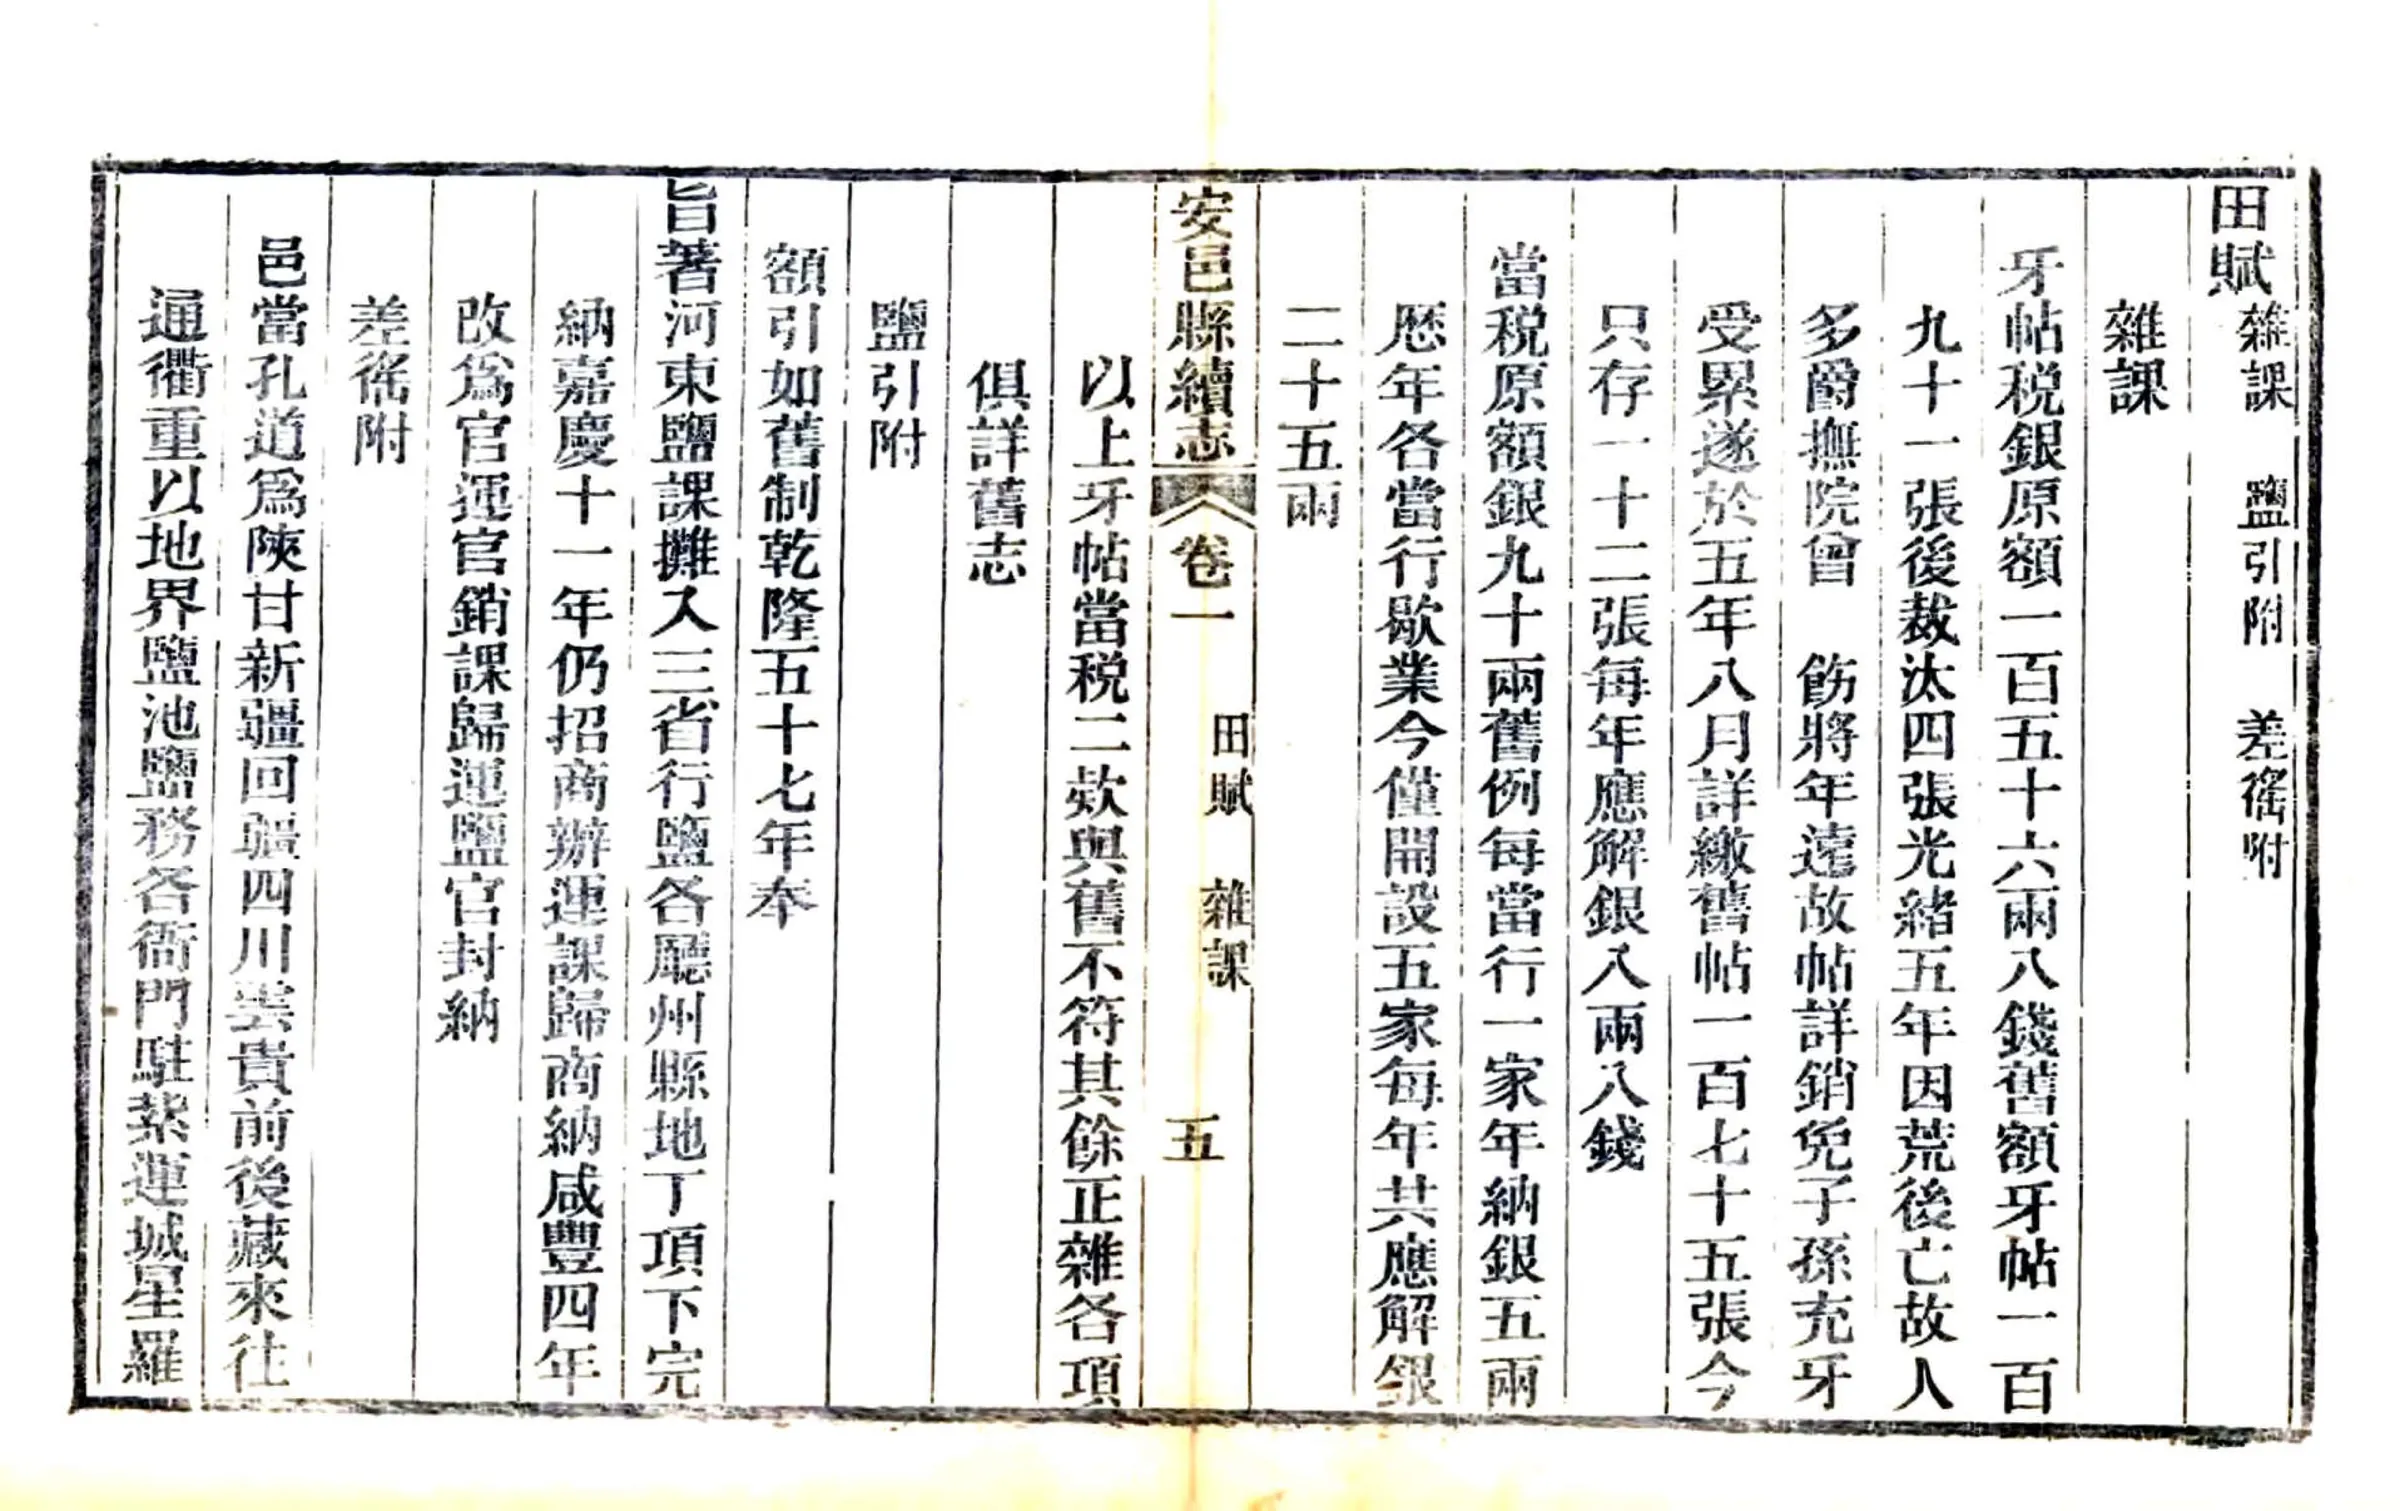 田賦 雜課 鹽引附 差徭附
雜課
牙帖税銀原額一百五十六兩八錢舊額牙帖一百
九十一張後裁汰四張光緒五年因荒後亡故人
多爵撫院曾 飭將年遠故帖詳銷免子孫充牙
受累遂於五年八月詳繳舊帖一百七十五張今
只存一十二張每年應解銀八兩八錢
當税原額銀九十兩舊例每當行一家年納銀五兩
歷年各當行歇業今僅開設五家每年共應解銀
二十五兩
安邑縣續志 卷一 田賦 雜課 五
以上牙帖當税二欵與舊不符其餘正雜各項
俱詳舊志
鹽引附
額引如舊制乾隆五十七年奉
旨著河東鹽課攤入三省行鹽各廳州縣地丁項下完
納嘉慶十一年仍招商辦運課歸商納咸豐四年
改爲官運官銷課歸運鹽官封納
差徭附
邑當孔道爲陝甘新疆回疆四川雲貴前後藏來往
通衢重以地界鹽池鹽務各衙門駐紮運城星羅